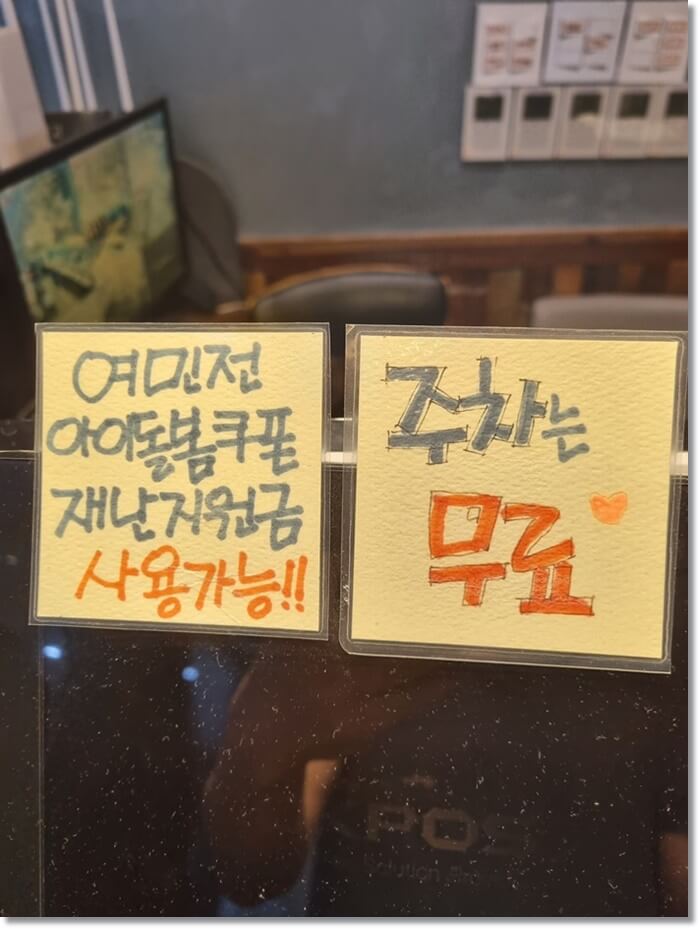 여민전
아이돌봄쿠폰
재난지원금
사용가능!!
주차는
무료
POS
Solution